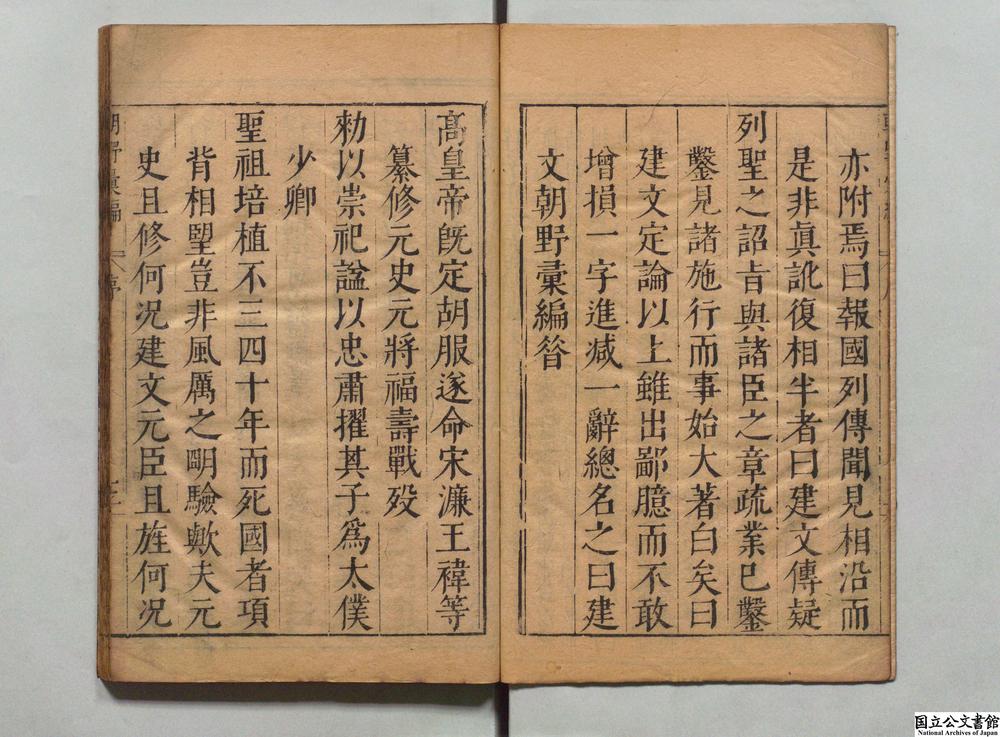 亦附焉曰報國列傳聞見相沿而
是非眞訛復相半者曰建文傳疑
列聖之詔旨與諸臣之章疏業已鑿
鑿見諸施行而事始大著白矣曰
建文定論以上雖出鄙臆而不敢
增損一字進减一辭總名之曰建
文朝野彙編昝
高皇帝旣定胡服遂命宋濂王褘等
纂修元史元將福壽戰歿
勑以崇祀諡以忠肅擢其子爲太僕
少卿
聖祖培植不三四十年而死國者項
背相朢豈非風厲之眀驗歟夫元
史且修何况建文元臣且旌何况
朝野彙編
序
国立公文書館
National Archives of Japan